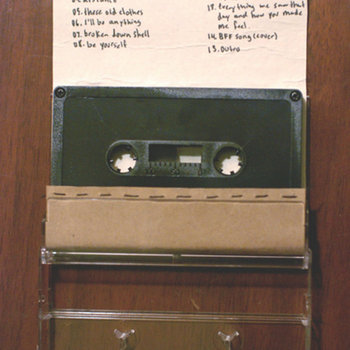 05. these old clothes
06. I'll be anything
07. broken down shell
08. be yourself
12. Everything we saw that
day and how you made
me feel.
14. BFF song (cover)
15. Outro